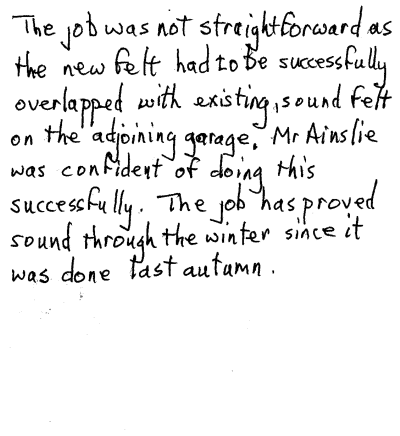 The job was not straightforward as
the new felt had to be successfully
overlapped with existing, sound felt
on the adjoining garage. Mr Ainslie
was confident of doing this
successfully. The job has proved
sound through the winter since it
was done last autumn.